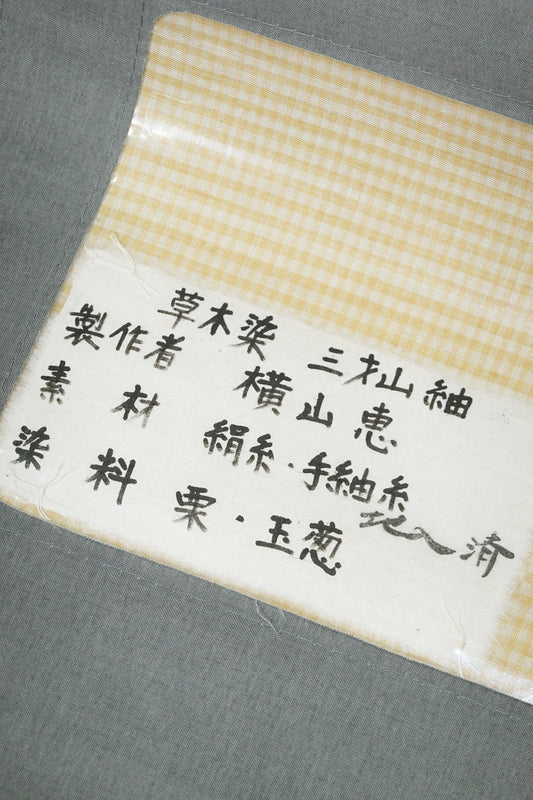 草木染 三才山紬
製作者 横山恵
素材 絹糸・手紬糸
染料 栗・玉葱
地入済